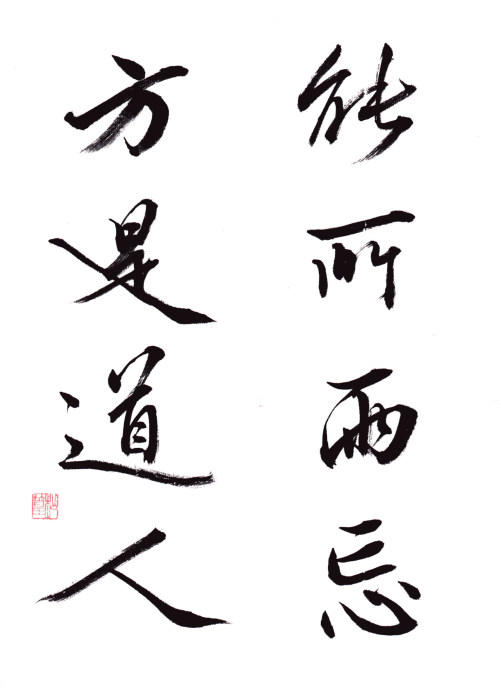 能所両忘
方是道人